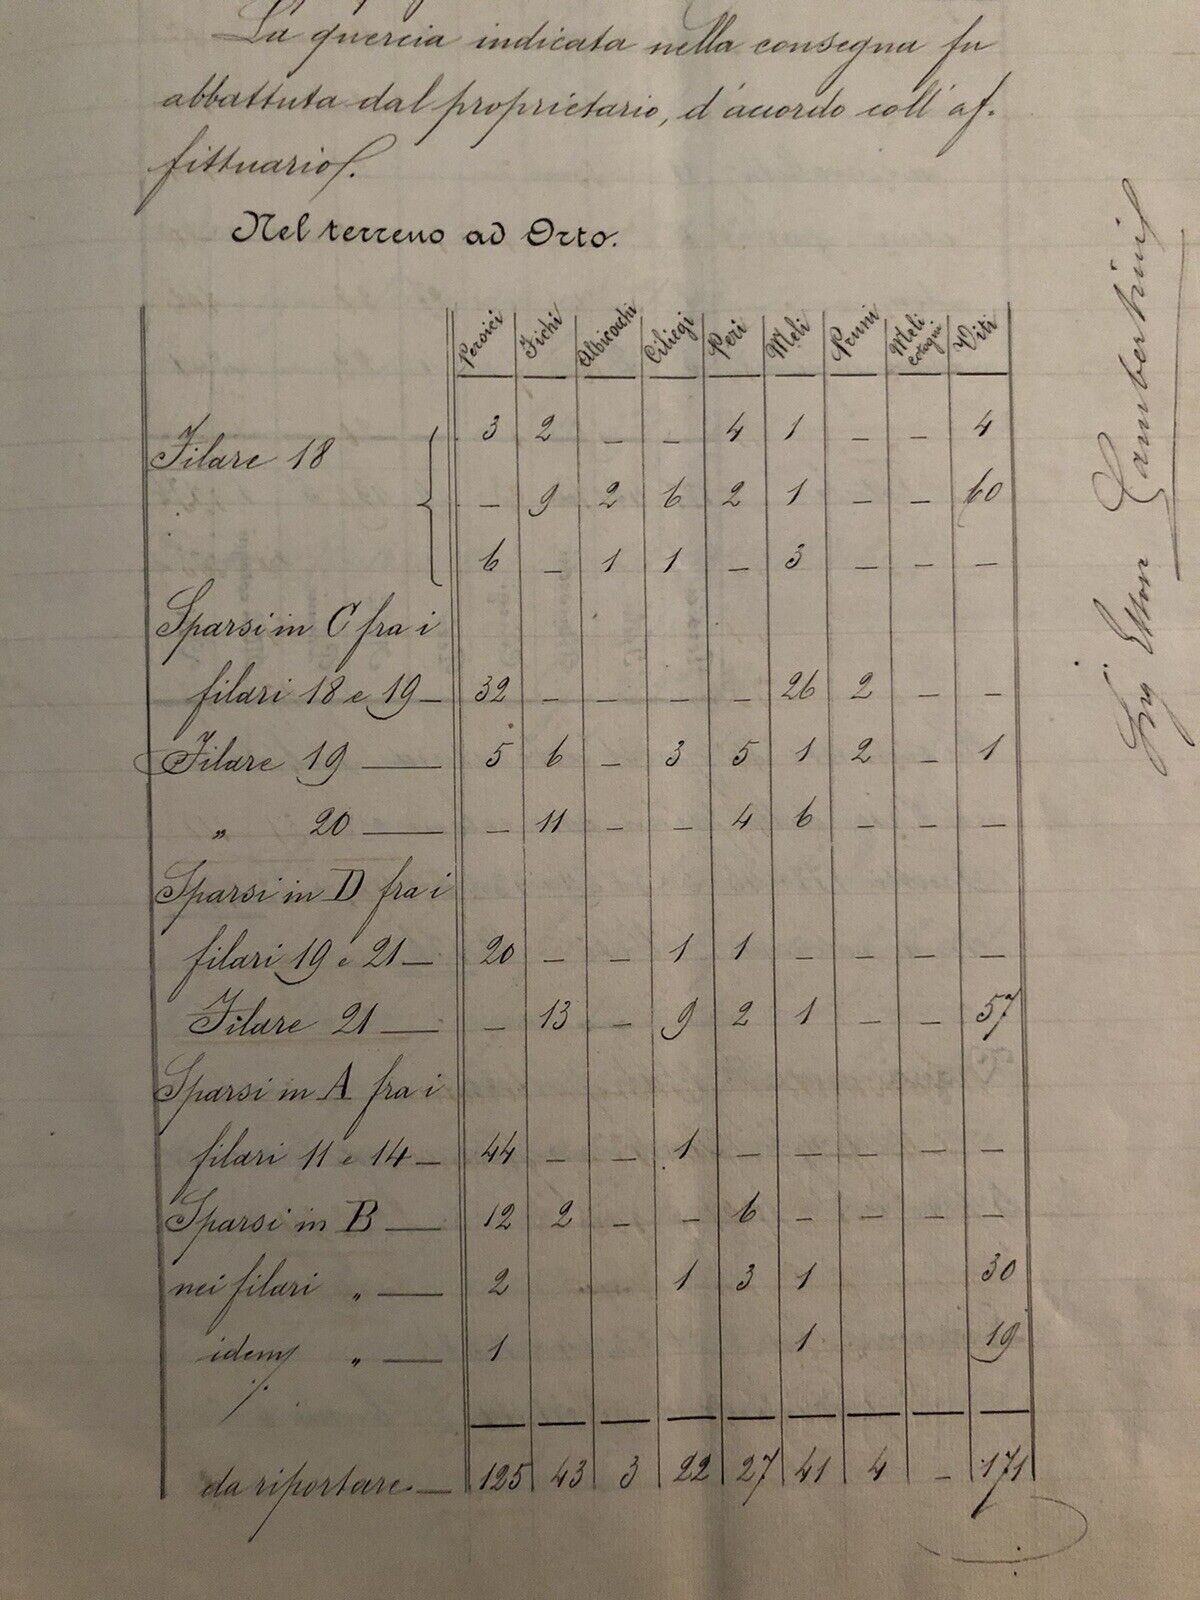 La quercia indicata nella consegna fu
abbattuta dal proprietario, d'accordo coll'af-
fittuario.
Nel terreno ad Orto.
Persici Fichi Albicocchi Ciliegi Peri Meli Pruni Meli cotogni Viti
Filare 18 3 2 – – 4 1 – – 4
– 9 2 6 2 1 – – 60
6 – 1 1 – 3 – – –
Sparsi in C fra i
filari 18 e 19 – 32 – – – – 26 2 – –
Filare 19 — 5 6 – 3 5 1 2 – 1
„ 20 — – 11 – – 4 6 – – –
Sparsi in D fra i
filari 19 e 21 – 20 – – 1 1 – – – –
Filare 21 — – 13 – 9 2 1 – – 57
Sparsi in A fra i
filari 11 e 14 – 44 – – 1 – – – – –
Sparsi in B — 12 2 – – 6 – – – –
nei filari „ — 2 1 3 1 30
idem „ — 1 1 19
da riportare — 125 43 3 22 27 41 4 – 171
Lambertini